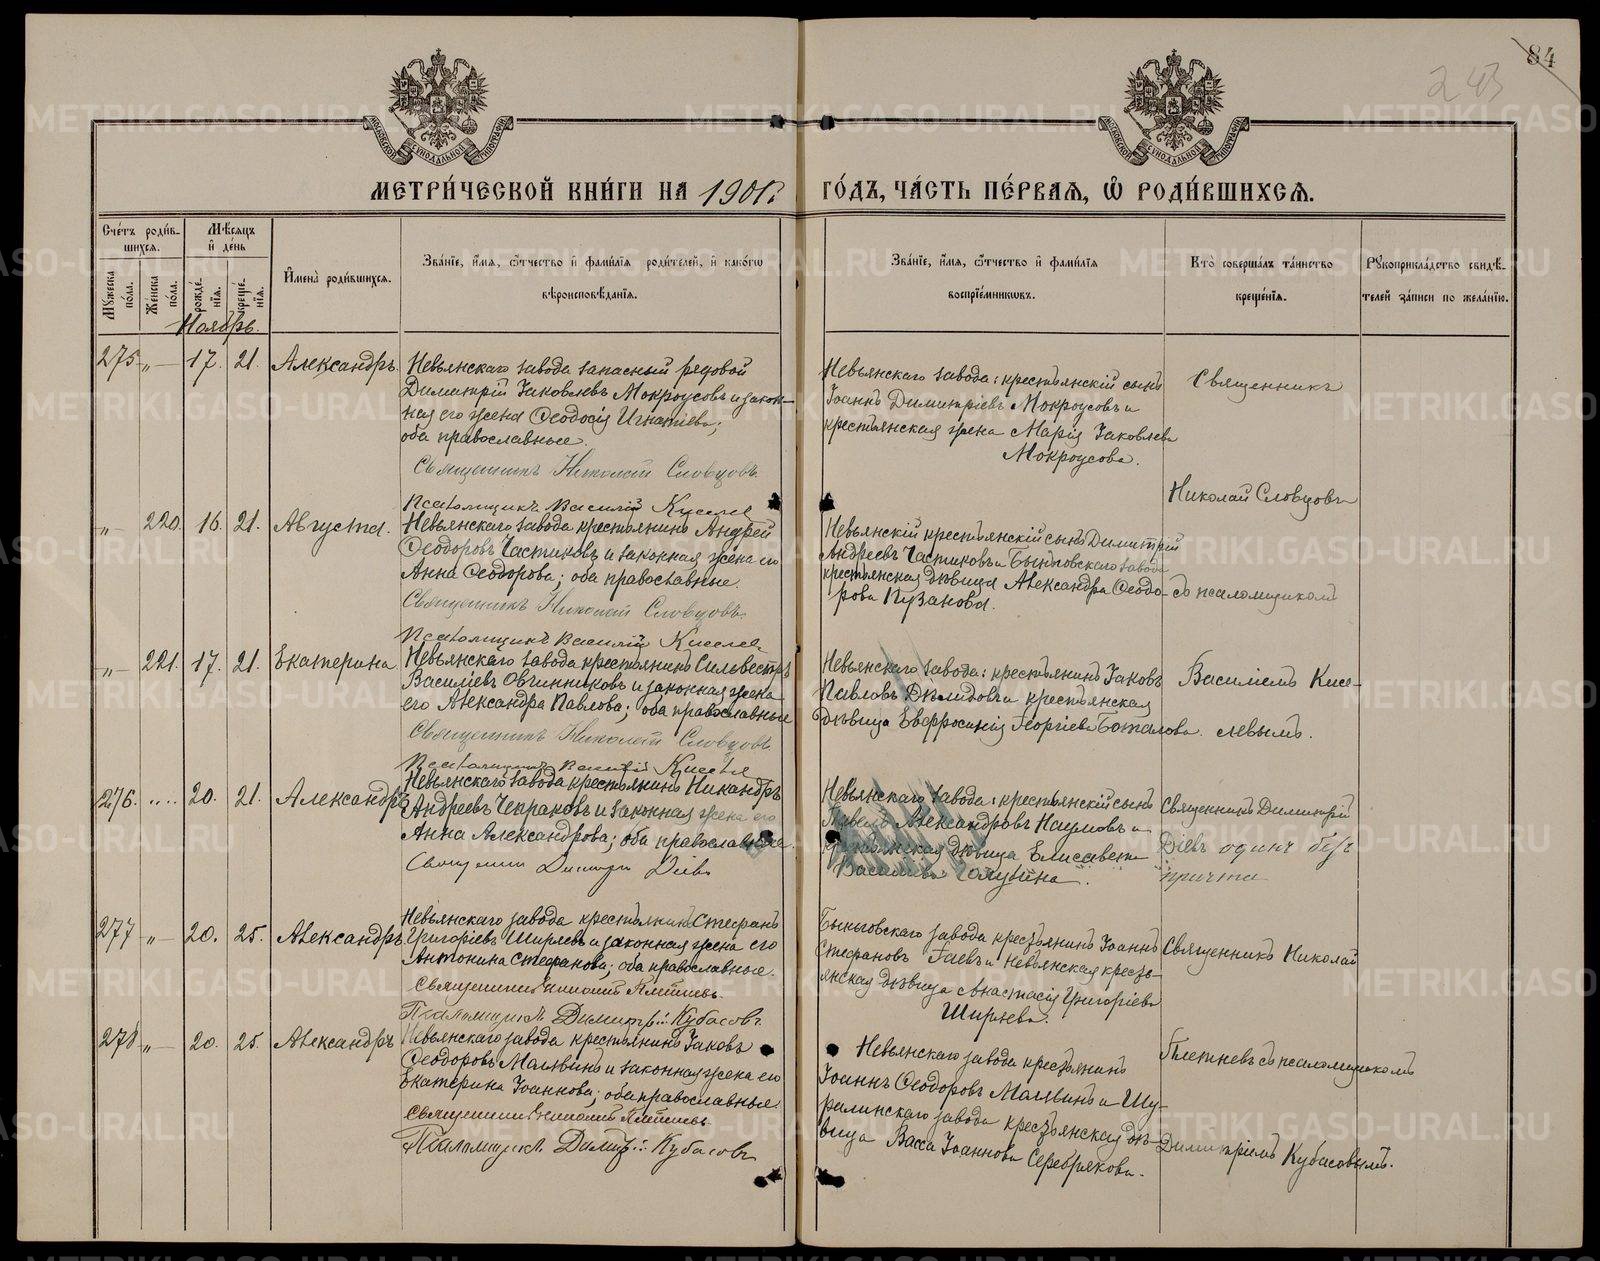 84
243
МОСКОВСКОЙ СѴНОДАЛЬНОЙ ТИПОГРАФІИ
МОСКОВСКОЙ СѴНОДАЛЬНОЙ ТИПОГРАФІИ
МЕТРИ́ЧЕСКОЙ КНИ́ГИ НА 1901 г. ГО́ДЪ, ЧА́СТЬ ПЕ́РВАЯ, Ѽ РОДИ́ВШИХСЯ.
Сче́тъ роди́в-
шихся.
Мѣ́сяцъ
и҆ де́нь
Му́жеска
по́ла.
Же́нска
по́ла.
рожде́-
нїя.
креще́-
нїя.
И҆мена̀ роди́вшихся.
Зва́нїе, и҆́мя, ѻ҆́тчество и҆ фами́лїя роди́телей, и҆ како́гѡ
вѣроисповѣ́данїя.
Зва́нїе, и҆́мя, ѻ҆́тчество и҆ фами́лїя
воспрїе́мникѡвъ.
Кто̀ соверша́лъ та́инство
креще́нїя.
Рꙋкоприкла́дство свидѣ́-
телей за́писи по жела́нїю.
Ноябрь.
275 „ 17. 21. Александръ.
Невьянскаго завода запасный рядовой
Димитрій Іаковлевъ Мокроусовъ и закон-
ная его жена Ѳеодосія Игнатіева;
оба православные.
Священникъ Николай Словцовъ
Псаломщикъ Василій Киселев
Невьянскаго завода: крестьянскій сынъ
Іоаннъ Димитріевъ Мокроусовъ и
крестьянская жена Марія Іаковлева
Мокроусова.
Священникъ
Николай Словцовъ
„ 220. 16. 21. Августа.
Невьянскаго завода крестьянинъ Андрей
Ѳеодоровъ Частиковъ и законная жена его
Анна Ѳеодорова; оба православные.
Священникъ Николай Словцовъ
Псаломщикъ Василій Киселев
Невьянскій крестьянскій сынъ Димитрій
Андреевъ Частиковъ и Быньговскаго завода
крестьянская дѣвица Александра Ѳеодо-
рова Пузанова.
съ псаломщикомъ
„ 221. 17. 21. Екатерина.
Невьянскаго завода крестьянинъ Сильвестръ
Василіевъ Овчинниковъ и законная жена
его Александра Павлова; оба православные
Священникъ Николай Словцовъ
Псаломщикъ Василій Киселев
Невьянскаго завода: крестьянинъ Іаковъ
Павловъ Демидовъ и крестьянская
дѣвица Евфросинія Георгіева Боталова.
Василіемъ Кисе-
левымъ.
276. „ 20. 21. Александръ
Невьянскаго завода крестьянинъ Никандръ
Андреевъ Чепраковъ и законная жена его
Анна Александрова; оба православные.
Священник Димитри Діевъ
Невьянскаго завода: крестьянскій сынъ
Павелъ Александровъ Наумовъ и
крестьянская дѣвица Елисавета
Василіева
Священникъ Димитрій
Діевъ одинъ безъ
причта
277 „ 20. 25. Александръ
Невьянскаго завода крестьянинъ Стефанъ
Григоріевъ Ширяевъ и законная жена его
Антонина Стефанова; оба православные.
Священникъ Николай Плетневъ.
Псаломщикъ Димитрій Кубасовъ.
Быньговскаго завода крестьянинъ Іоаннъ
Стефановъ Гаевъ и Невьянская кресть-
янская дѣвица Анастасія Григоріева
Ширяева.
Священникъ Николай
278 „ 20. 25. Александръ
Невьянскаго завода крестьянинъ Іаковъ
Ѳеодоровъ Малявинъ и законная жена его
Екатерина Іоаннова; оба православные.
Священникъ Николай Плетневъ.
Псаломщикъ Димитрій Кубасовъ
Невьянскаго завода крестьянинъ
Іоаннъ Ѳеодоровъ Малявинъ и Шу-
ралинскаго завода крестьянская дѣ-
вица Васса Іоаннова Серебрякова.
Плетневъ съ псаломщикомъ
Димитріемъ Кубасовымъ.
METRIKI.GASO-URAL.RU